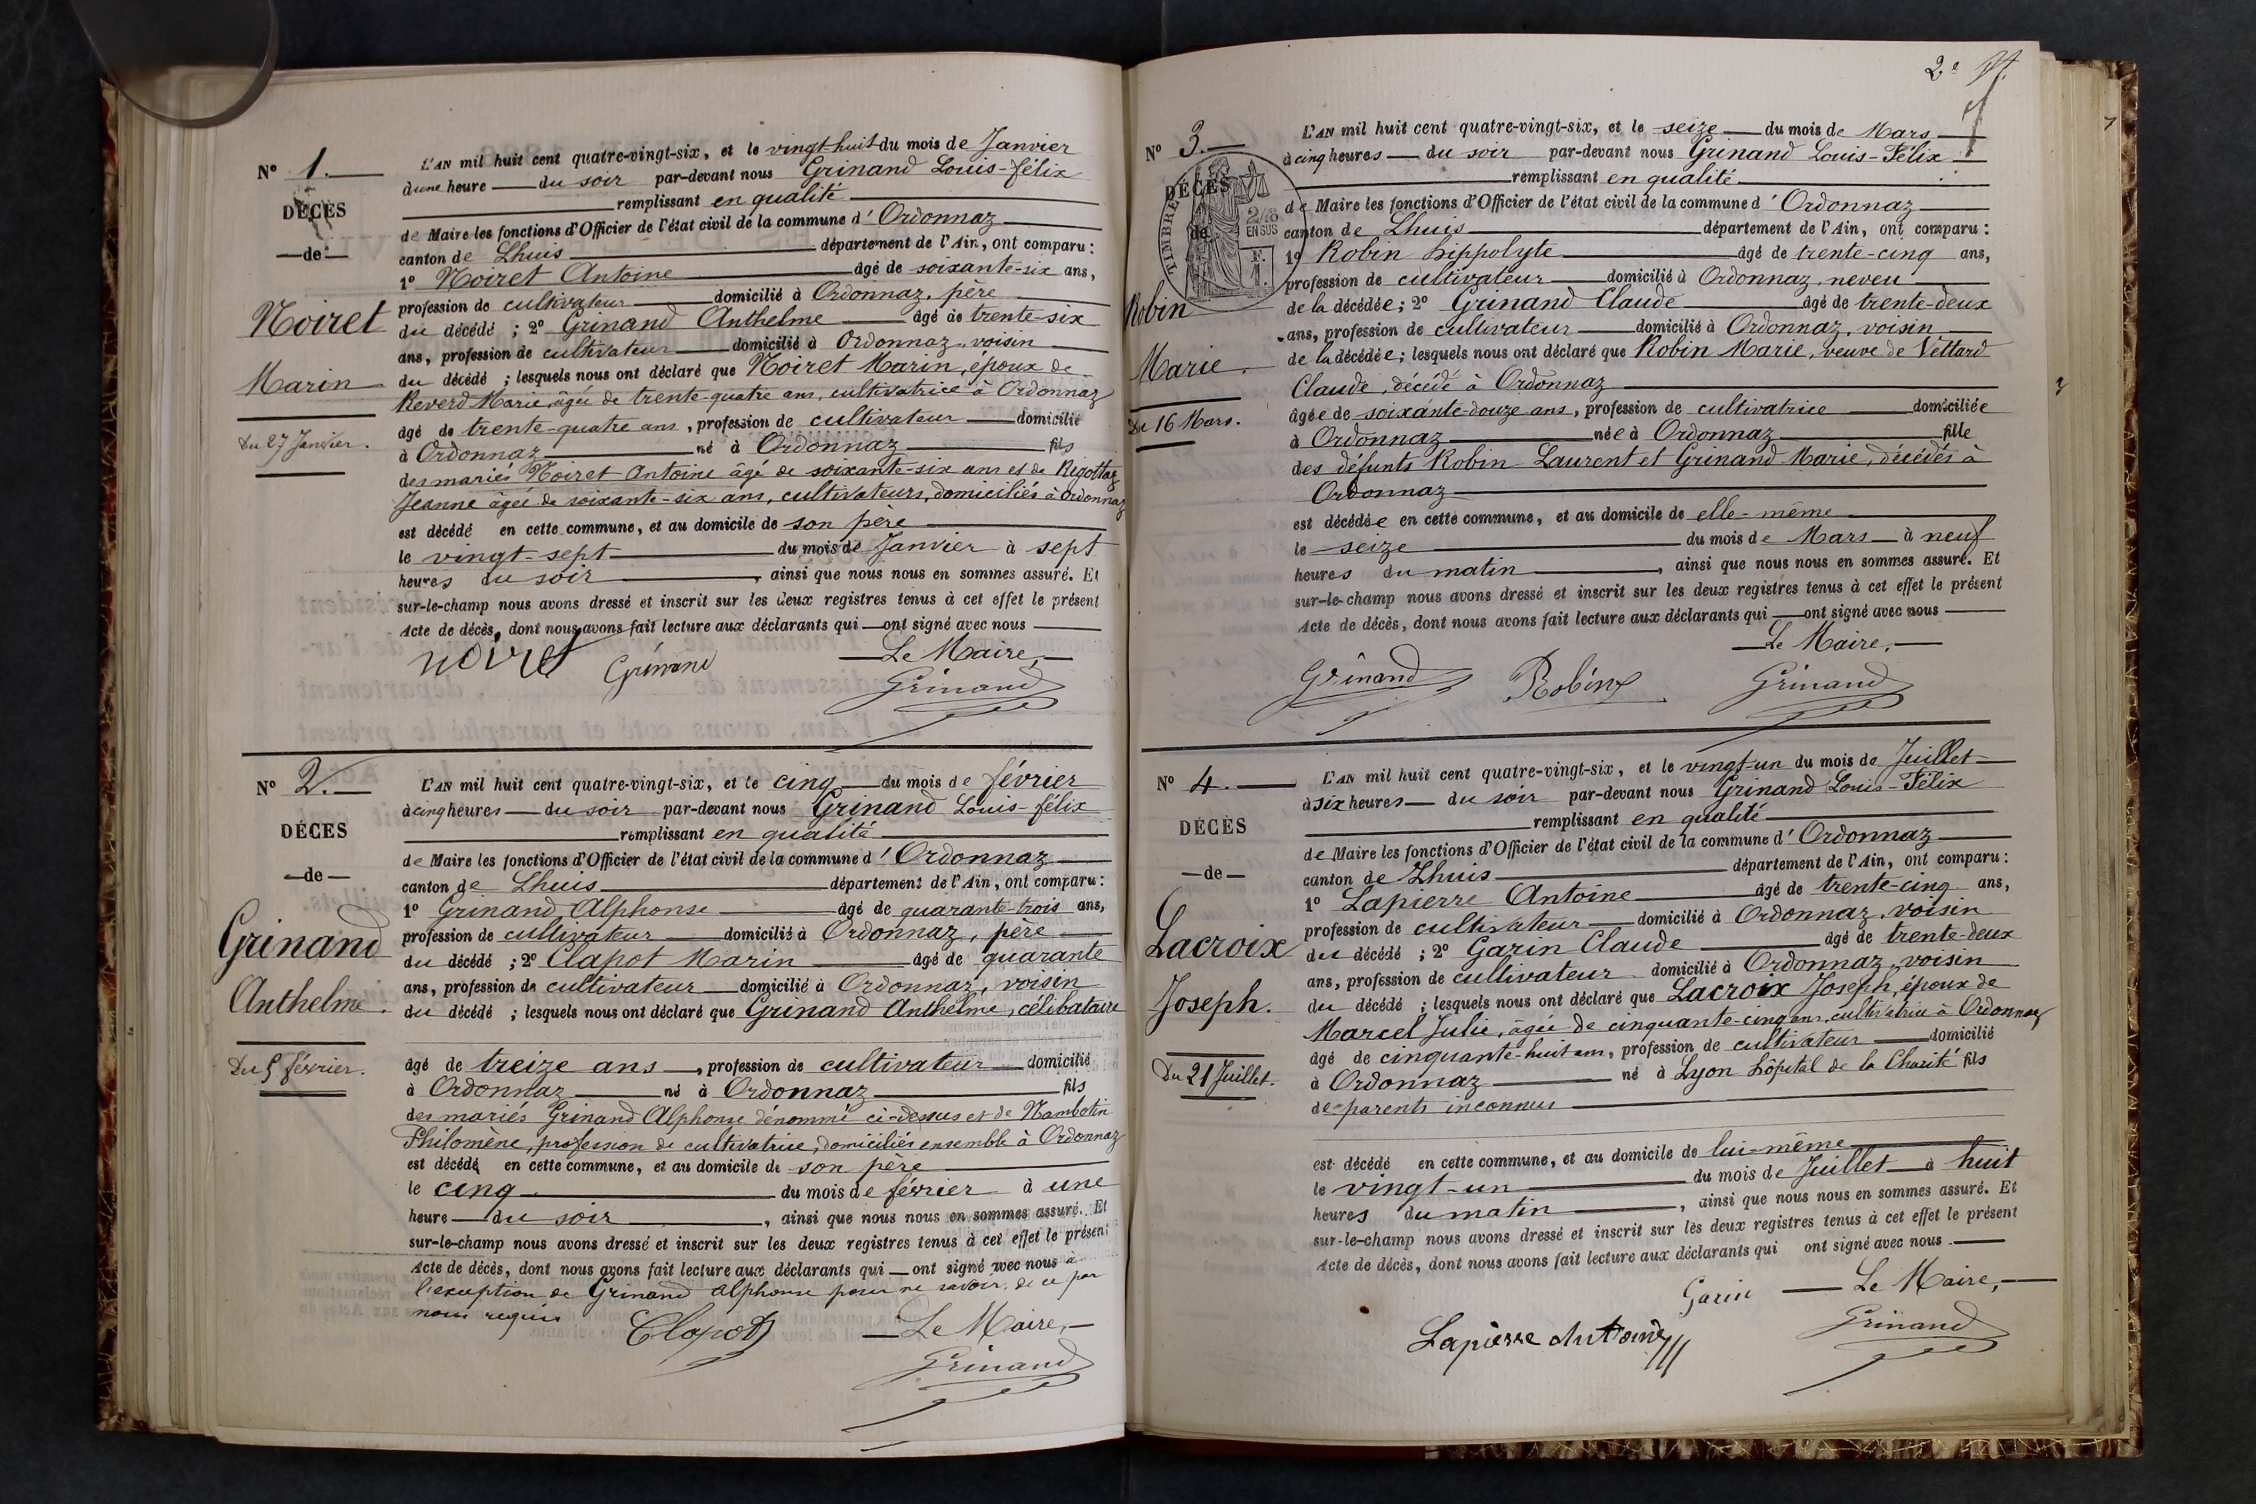 Nº 1.
DÉCÈS
de
Noiret
Marin
Du 27 Janvier.
L'AN mil huit cent quatre-vingt-six, et le vingt-huit du mois de Janvier
à une heure du soir par-devant nous Grinand Louis-félix
remplissant en qualité
de Maire les fonctions d'Officier de l'état civil de la commune d'Ordonnaz
canton de Lhuis département de l'Ain, ont comparu :
1º Noiret Antoine âgé de soixante-six ans,
profession de cultivateur domicilié à Ordonnaz, père
du décédé ; 2º Grinand Anthelme âgé de trente-six
ans, profession de cultivateur domicilié à Ordonnaz, voisin
du décédé ; lesquels nous ont déclaré que Noiret Marin, époux de
Reverd Marie, âgée de trente-quatre ans, cultivatrice à Ordonnaz
âgé de trente-quatre ans, profession de cultivateur domicilié
à Ordonnaz né à Ordonnaz fils
des mariés Noiret Antoine âgé de soixante-six ans et de Rigottaz
Jeanne âgée de soixante-six ans, cultivateurs, domiciliés à Ordonnaz
est décédé en cette commune, et au domicile de son père
le vingt-sept du mois de Janvier à sept
heures du soir, ainsi que nous nous en sommes assuré. Et
sur-le-champ nous avons dressé et inscrit sur les deux registres tenus à cet effet le présent
Acte de décès, dont nous avons fait lecture aux déclarants qui ont signé avec nous
Le Maire,
noiret Grinand Grinand
Nº 2.
DÉCES
de
Grinand
Anthelme.
Du 5 février.
L'AN mil huit cent quatre-vingt-six, et le cinq du mois de février
à cinq heures du soir par-devant nous Grinand Louis-félix
remplissant en qualité
de Maire les fonctions d'Officier de l'état civil de la commune d'Ordonnaz
canton de Lhuis département de l'Ain, ont comparu :
1º Grinand Alphonse âgé de quarante-trois ans,
profession de cultivateur domicilié à Ordonnaz, père
du décédé ; 2º Clapot Marin âgé de quarante
ans, profession de cultivateur domicilié à Ordonnaz, voisin
du décédé ; lesquels nous ont déclaré que Grinand Anthelme, célibataire
âgé de treize ans, profession de cultivateur domicilié
à Ordonnaz né à Ordonnaz fils
des mariés Grinand Alphonse dénommé ci-dessus et de Nambotin
Philomène, profession de cultivatrice, domiciliés ensemble à Ordonnaz
est décédé en cette commune, et au domicile de son père
le cinq du mois de février à une
heure du soir, ainsi que nous nous en sommes assuré. Et
sur-le-champ nous avons dressé et inscrit sur les deux registres tenus à cet effet le présent
Acte de décès, dont nous avons fait lecture aux déclarants qui ont signé avec nous à
l'exception de Grinand Alphonse pour ne savoir de ce par
nous requis
Clapot Le Maire,
Grinand
2e
Nº 3.
DÉCÈS
de
TIMBRE
2/10 EN SUS
Robin
Marie.
Du 16 Mars.
L'AN mil huit cent quatre-vingt-six, et le seize du mois de Mars
à cinq heures du soir par-devant nous Grinand Louis-Félix
remplissant en qualité
de Maire les fonctions d'Officier de l'état civil de la commune d'Ordonnaz
canton de Lhuis département de l'Ain, ont comparu :
1º Robin hippolyte âgé de trente-cinq ans,
profession de cultivateur domicilié à Ordonnaz, neveu
de la décédée ; 2º Grinand Claude âgé de trente-deux
ans, profession de cultivateur domicilié à Ordonnaz, voisin
de la décédée ; lesquels nous ont déclaré que Robin Marie, veuve de Vettard
Claude, décédé à Ordonnaz
âgée de soixante-douze ans, profession de cultivatrice domiciliée
à Ordonnaz née à Ordonnaz fille
des défunts Robin Laurent et Grinand Marie, décédés à
Ordonnaz
est décédée en cette commune, et au domicile de elle-même
le seize du mois de Mars à neuf
heures du matin, ainsi que nous nous en sommes assuré. Et
sur-le-champ nous avons dressé et inscrit sur les deux registres tenus à cet effet le présent
Acte de décès, dont nous avons fait lecture aux déclarants qui ont signé avec nous
Le Maire,
Grinand Robin Grinand
Nº 4.
DÉCÈS
de
Lacroix
Joseph.
Du 21 Juillet.
L'AN mil huit cent quatre-vingt-six, et le vingt-un du mois de Juillet
à six heures du soir par-devant nous Grinand Louis-Félix
remplissant en qualité
de Maire les fonctions d'Officier de l'état civil de la commune d'Ordonnaz
canton de Lhuis département de l'Ain, ont comparu :
1º Lapierre Antoine âgé de trente-cinq ans,
profession de cultivateur domicilié à Ordonnaz, voisin
du décédé ; 2º Garin Claude âgé de trente-deux
ans, profession de cultivateur domicilié à Ordonnaz, voisin
du décédé ; lesquels nous ont déclaré que Lacroix Joseph, époux de
Marcel Julie, âgée de cinquante-cinq ans, cultivatrice à Ordonnaz
âgé de cinquante-huit ans, profession de cultivateur domicilié
à Ordonnaz né à Lyon hôpital de la Charité fils
de parents inconnus
est décédé en cette commune, et au domicile de lui-même
le vingt-un du mois de Juillet à huit
heures du matin, ainsi que nous nous en sommes assuré. Et
sur-le-champ nous avons dressé et inscrit sur les deux registres tenus à cet effet le présent
Acte de décès, dont nous avons fait lecture aux déclarants qui ont signé avec nous
Garin Le Maire,
Lapierre Antoine Grinand